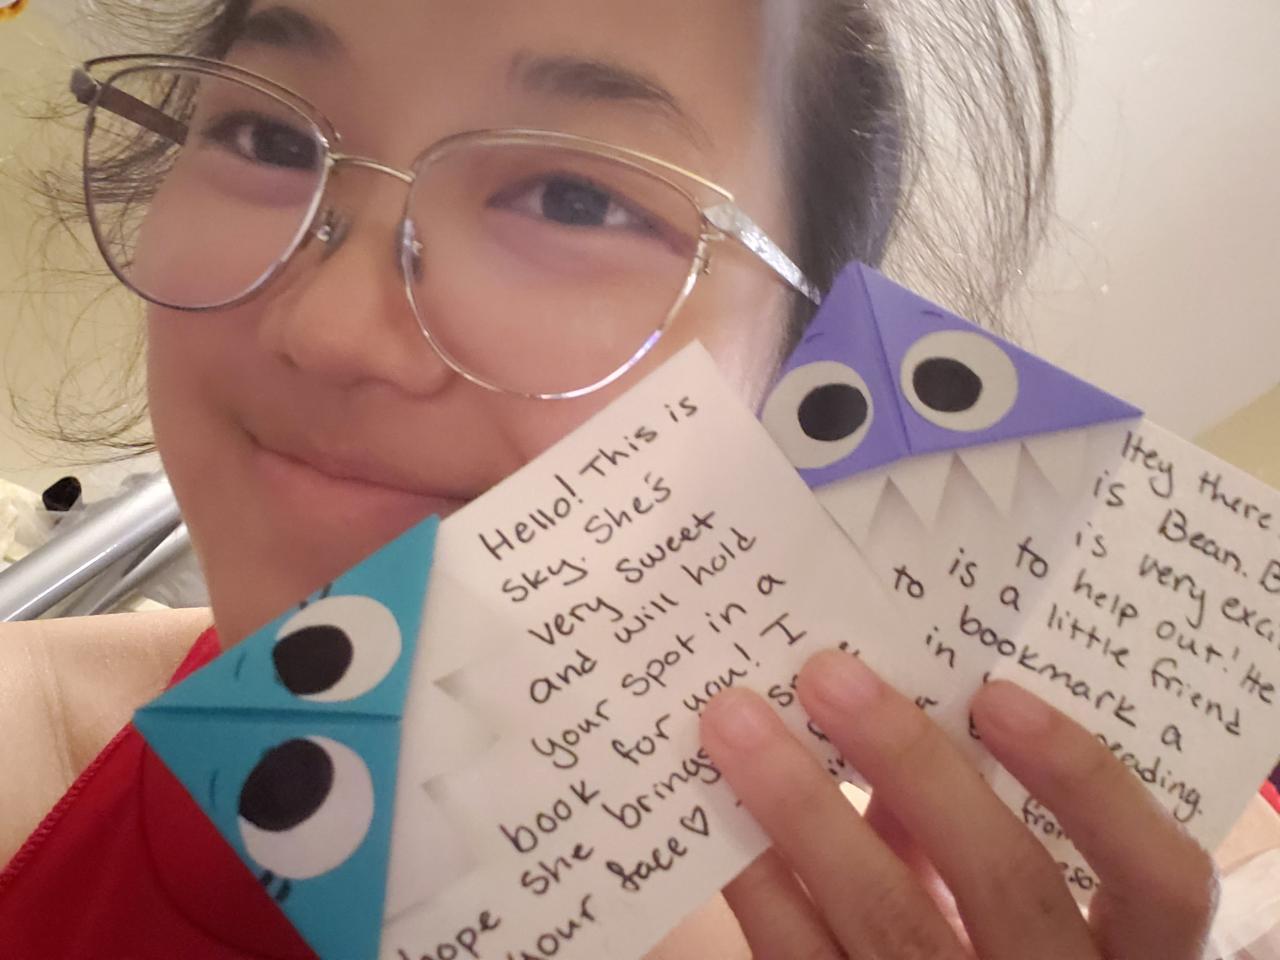 Hello! This is
Sky. She's
very sweet
and will hold
your spot in a
book for you! I
hope she brings
your face ♡
Hey there
is Bean.
is very
to help out! He
is a little friend
to bookmark a
in